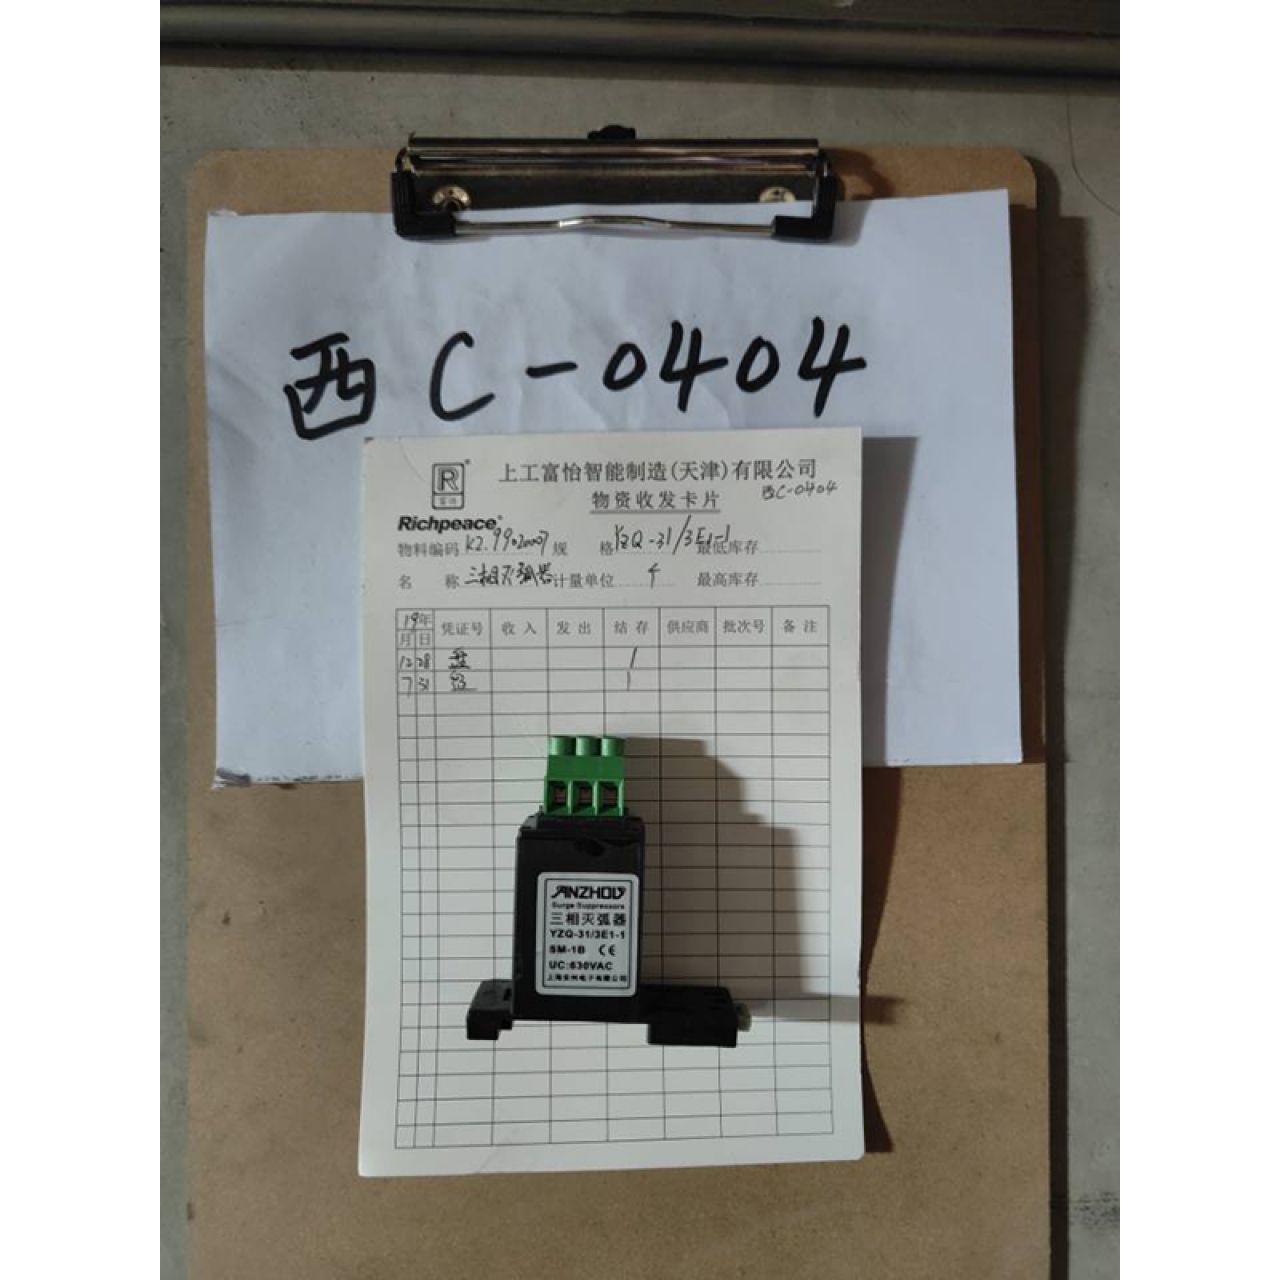 西C-0404
R
富怡
上工富怡智能制造(天津)有限公司
物资收发卡片
西C-0404
Richpeace
物料编码 K2.99020007 规 格 YZQ-31/3E1-1 最低库存
名 称 三相灭弧器 计量单位 个 最高库存
19年 凭证号 收入 发出 结存 供应商 批次号 备注
月 日
12 28 盘 1
7 31 1
ANZHOU
Surge Suppressors
三相灭弧器
YZQ-31/3E1-1
SM-1B CE
UC:630VAC
上海安州电子有限公司